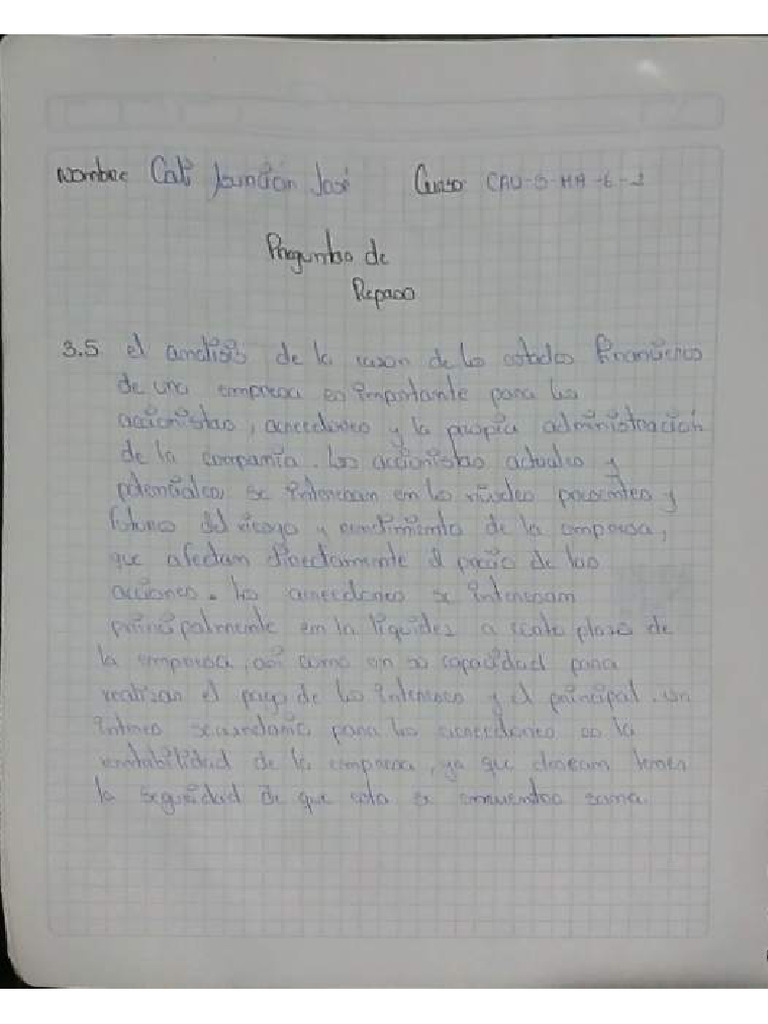 Nombre Cali José Curso CAU-S-MA-6-2
Preguntas de
Repaso
3.5 el analisis de la razon de los estados financieros
de una empresa es importante para los
accionistas, acreedores y la propia administración
de la compañia. Los accionistas actuales y
potenciales se interesan en los niveles presentes y
futuros del riesgo y rendimiento de la empresa,
que afectan directamente el precio de las
acciones. Los acreedores se interesan
principalmente en la liquidez a corto plazo de
la empresa, asi como en su capacidad para
realizar el pago de los intereses y el principal. un
interes secundario para los acreedores es la
rentabilidad de la empresa, ya que desean tener
la seguridad de que esta se encuentra sana.